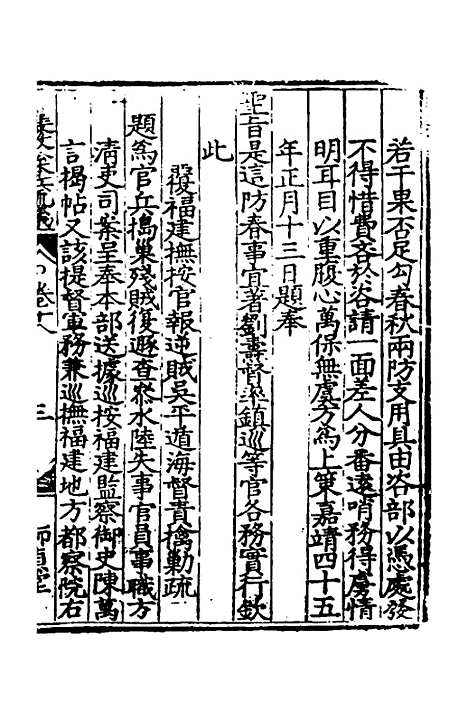 若干果否足勾春秋兩防支用具由咨部以憑處發
不得惜費吝於咨請一面差人分番遠哨務得虜情
明耳目以重腹心萬保無虞方為上策嘉靖四十五
年正月十三日題奉
聖旨是這防春事宜著劉燾督率鎮巡等官各務實行欽
此
覆福建撫按官報逆賊吳平遁海督責擒勦疏
題為官兵搗巢殘賊復遯查叅水陸失事官員事職方
清吏司案呈奉本部送據巡按福建監察御史陳萬
言揭帖又該提督軍務兼巡撫福建地方都察院右
卷十八
三